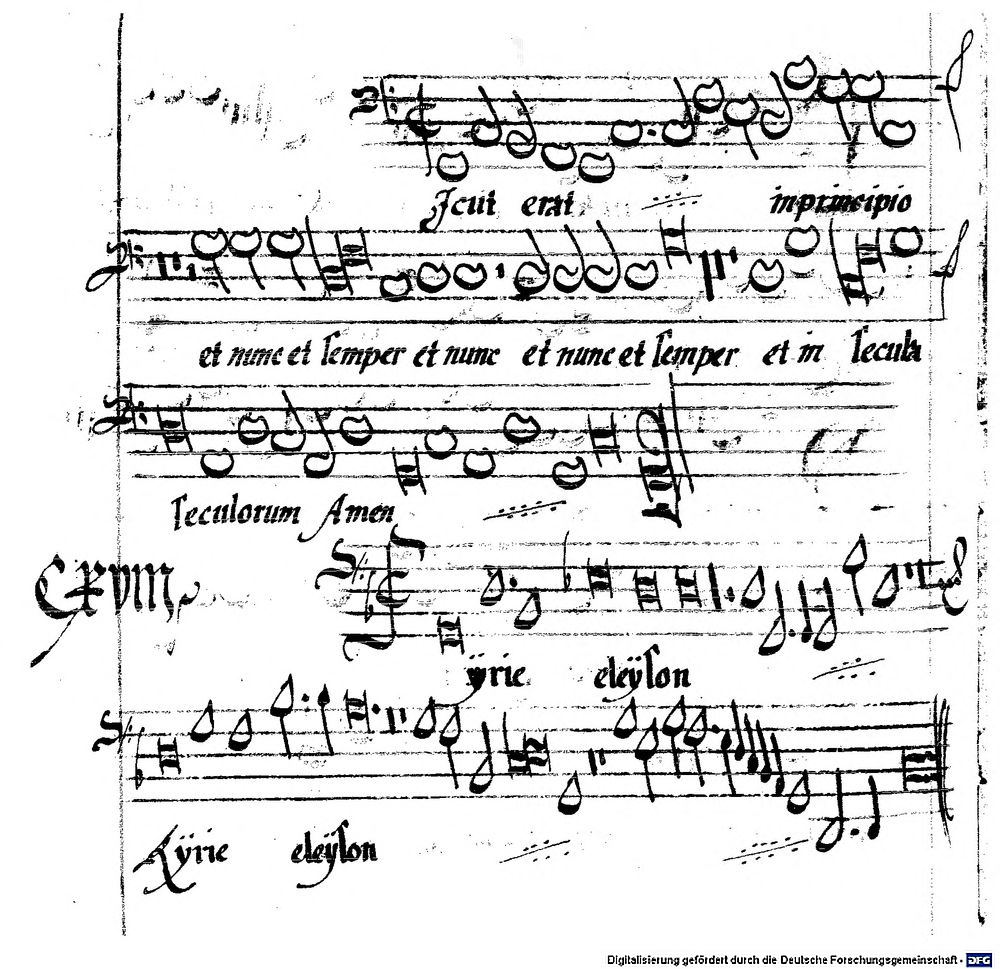 Icut erat inprincipio
et nunc et ſemper et nunc et nunc et ſemper et in ſecula
ſeculorum Amen
yrie eleÿſon
Kÿrie eleÿſon
Digitalisierung gefördert durch die Deutsche Forschungsgemeinschaft - DFG